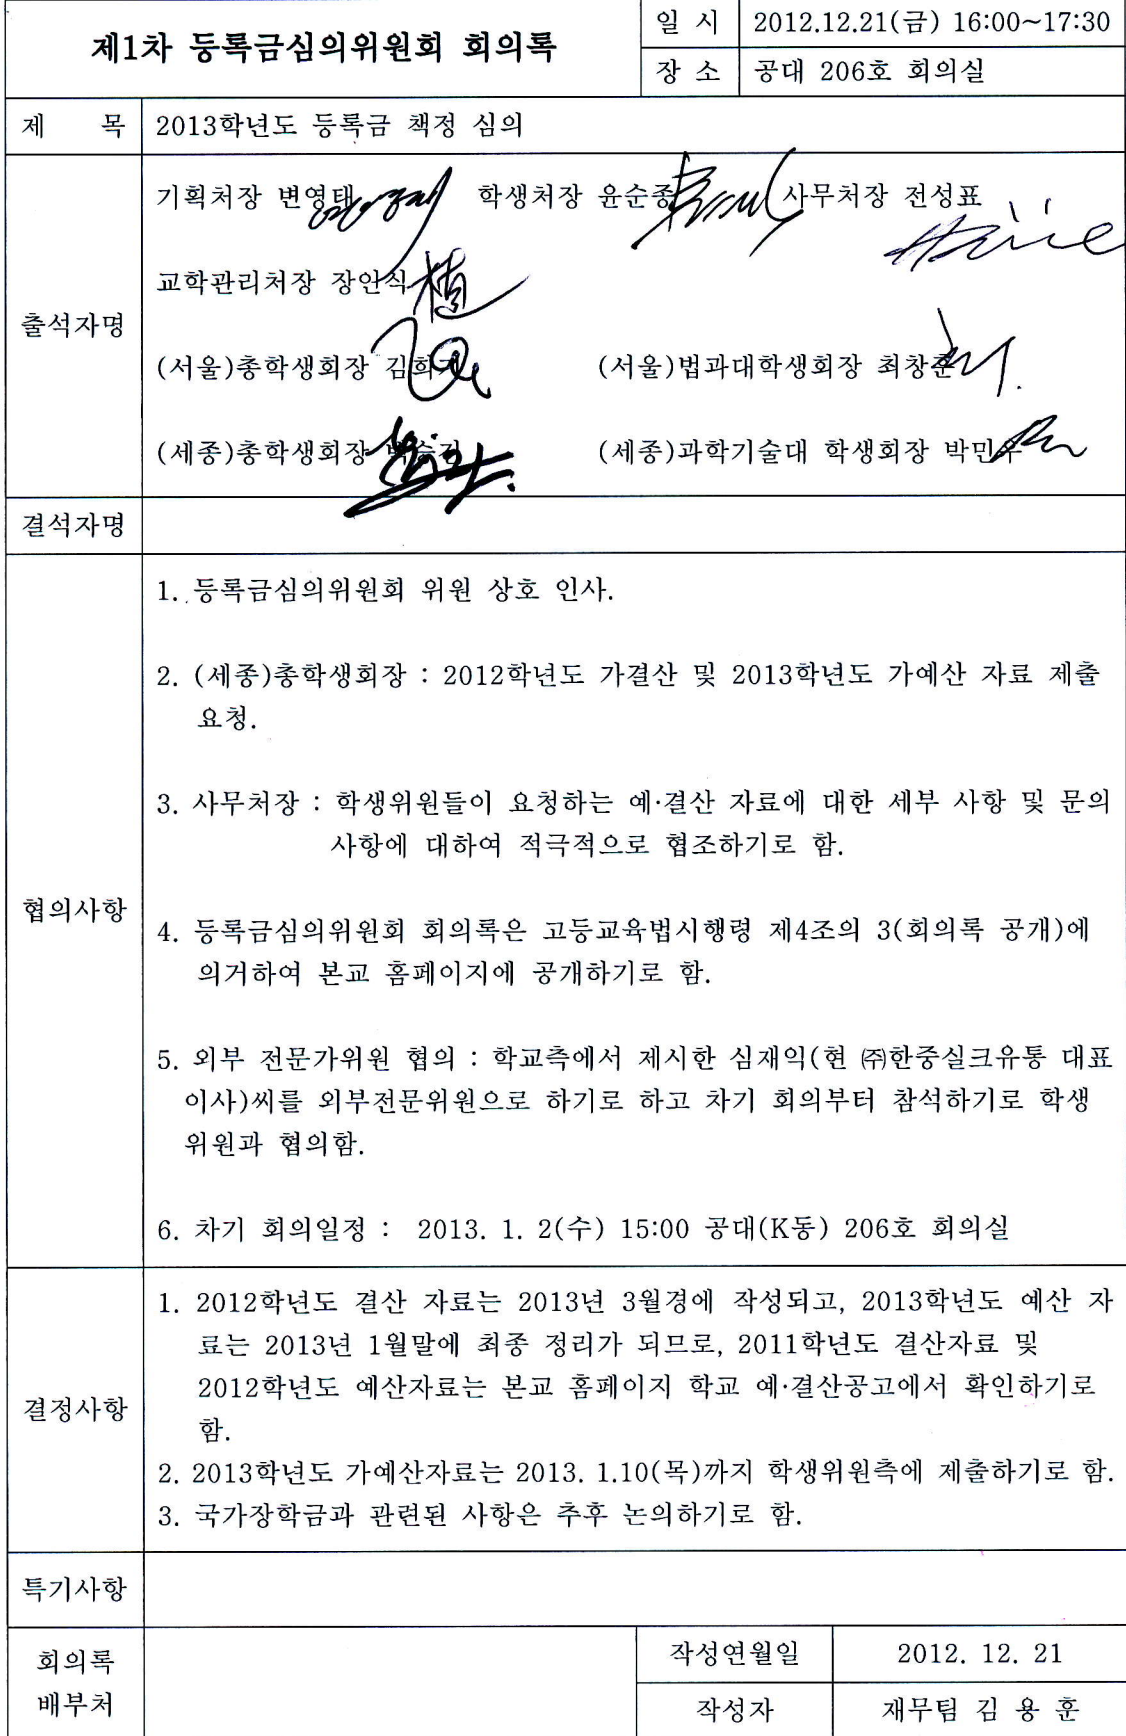 제1차 등록금심의위원회 회의록
일 시 2012.12.21(금) 16:00~17:30
장 소 공대 206호 회의실
제 목 2013학년도 등록금 책정 심의
출석자명
기획처장 변영태 학생처장 윤순종 사무처장 전성표
교학관리처장 장안식
(서울)총학생회장 (서울)법과대학생회장 최창훈
(세종)총학생회장 (세종)과학기술대 학생회장 박민우
결석자명
협의사항
1. 등록금심의위원회 위원 상호 인사.
2. (세종)총학생회장 : 2012학년도 가결산 및 2013학년도 가예산 자료 제출
요청.
3. 사무처장 : 학생위원들이 요청하는 예·결산 자료에 대한 세부 사항 및 문의
사항에 대하여 적극적으로 협조하기로 함.
4. 등록금심의위원회 회의록은 고등교육법시행령 제4조의 3(회의록 공개)에
의거하여 본교 홈페이지에 공개하기로 함.
5. 외부 전문가위원 협의 : 학교측에서 제시한 심재익(현 ㈜한중실크유통 대표
이사)씨를 외부전문위원으로 하기로 하고 차기 회의부터 참석하기로 학생
위원과 협의함.
6. 차기 회의일정 : 2013. 1. 2(수) 15:00 공대(K동) 206호 회의실
결정사항
1. 2012학년도 결산 자료는 2013년 3월경에 작성되고, 2013학년도 예산 자
료는 2013년 1월말에 최종 정리가 되므로, 2011학년도 결산자료 및
2012학년도 예산자료는 본교 홈페이지 학교 예·결산공고에서 확인하기로
함.
2. 2013학년도 가예산자료는 2013. 1.10(목)까지 학생위원측에 제출하기로 함.
3. 국가장학금과 관련된 사항은 추후 논의하기로 함.
특기사항
회의록
배부처
작성연월일 2012. 12. 21
작성자 재무팀 김 용 훈